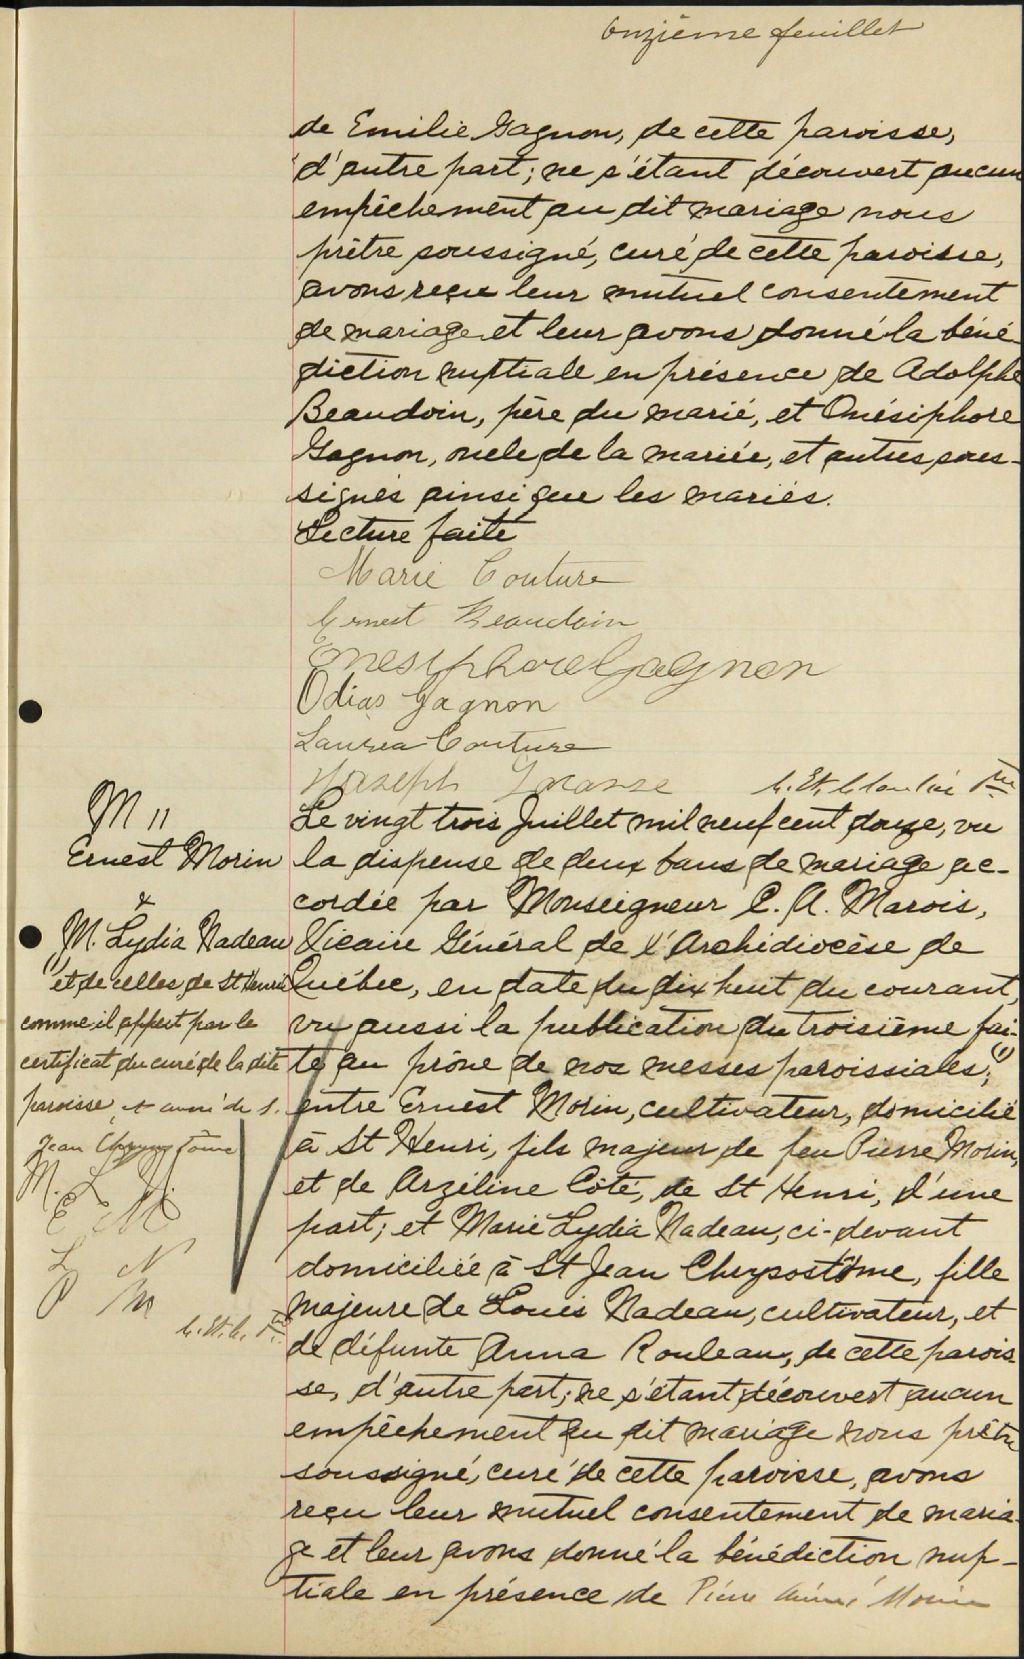 Onzième feuillet
de Emilie Gagnon, de cette paroisse,
d'autre part; ne s'étant découvert aucun
empêchement au dit mariage nous
prêtre soussigné, curé de cette paroisse,
avons reçu leur mutuel consentement
de mariage et leur avons donné la béné-
diction nuptiale en présence de Adolphe
Beaudoin, père du marié, et Onésiphore
Gagnon, oncle de la mariée, et autres sous-
signés ainsi que les mariés.
Lecture faite
Marie Couture
Ernest Beaudoin
Onesiphore Gagnon
Odias Gagnon
Laurea Couture
Joseph
M 11
Ernest Morin
&
M. Lydia Nadeau
(1) et de celles de St Henri
comme il appert par le
certificat du curé de la dite
paroisse et aussi de S.
Jean Chrysostôme
M. L. N.
E M
L N
P M
Le vingt trois Juillet mil neuf cent douze, vu
la dispense de deux bans de mariage ac-
cordée par Monseigneur C. A. Marois,
Vicaire Général de l'Archidiocèse de
Québec, en date du dix huit du courant,
vu aussi la publication du troisième fai-
te au prône de nos messes paroissiales, (1)
entre Ernest Morin, cultivateur, domicilié
à St Henri, fils majeur de feu Pierre Morin,
et de Arzéline Côté, de St Henri, d'une
part; et Marie Lydia Nadeau, ci-devant
domiciliée à St Jean Chrysostôme, fille
majeure de Louis Nadeau, cultivateur, et
de défunte Anna Rouleau, de cette parois
se, d'autre part; ne s'étant découvert aucun
empêchement au dit mariage nous prêtre
soussigné, curé de cette paroisse, avons
reçu leur mutuel consentement de maria-
ge et leur avons donné la bénédiction nup-
tiale en présence de Pierre Aimé Morin